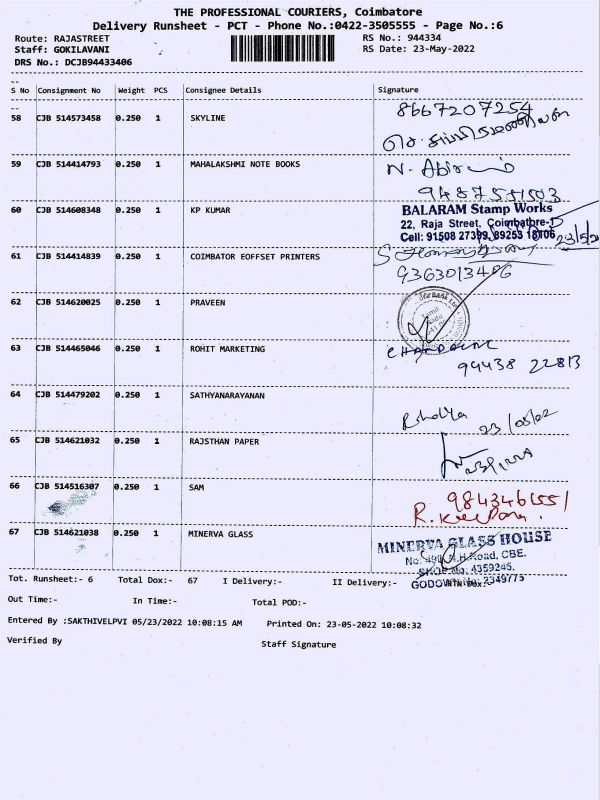 THE PROFESSIONAL COURIERS, Coimbatore
Delivery Runsheet - PCT - Phone No.:0422-3505555 - Page No.:6
Route: RAJASTREET
Staff: GOKILAVANI
DRS No.: DCJB94433406
RS No.: 944334
RS Date: 23-May-2022
S No Consignment No Weight PCS Consignee Details Signature
58 CJB 514573458 0.250 1 SKYLINE 8667207254
59 CJB 514414793 0.250 1 MAHALAKSHMI NOTE BOOKS
60 CJB 514608348 0.250 1 KP KUMAR BALARAM Stamp Works
22, Raja Street, Coimbatore-1
Cell: 91508 27399, 89253 18106
61 CJB 514414839 0.250 1 COIMBATOR EOFFSET PRINTERS
9363013406
62 CJB 514620025 0.250 1 PRAVEEN
63 CJB 514465046 0.250 1 ROHIT MARKETING
94438 22813
64 CJB 514479202 0.250 1 SATHYANARAYANAN
65 CJB 514621032 0.250 1 RAJSTHAN PAPER
66 CJB 514516307 0.250 1 SAM
67 CJB 514621038 0.250 1 MINERVA GLASS MINERVA GLASS HOUSE
H.Road, CBE.
4359245.
GODOWN 2349775
Tot. Runsheet:- 6 Total Dox:- 67 I Delivery:- II Delivery:-
Out Time:- In Time:- Total POD:-
Entered By :SAKTHIVELPVI 05/23/2022 10:08:15 AM Printed On: 23-05-2022 10:08:32
Verified By Staff Signature